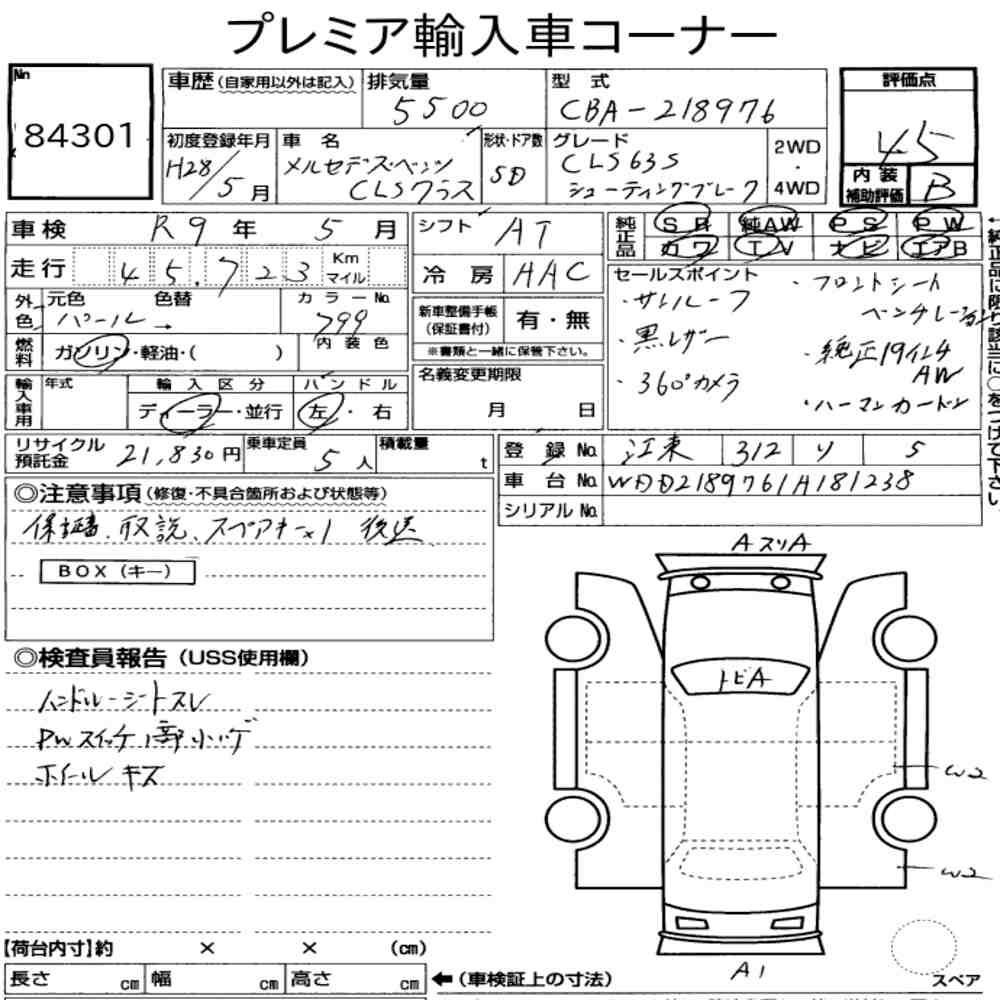 プレミア輸入車コーナー
No
84301
車歴(自家用以外は記入)
排気量
5500
型式
CBA-218976
評価点
4.5
初度登録年月
H28/5月
車名
メルセデスベンツ
CLSクラス
形状・ドア数
SD
グレード
CLS63S
シューティングブレーク
2WD
・
4WD
内装
補助評価
B
車検 R9年 5月
走行 45,723 Km
マイル
外色
元色 色替
パール →
カラーNo.
799
燃料
ガソリン・軽油・( )
内装色
輸入車用
年式
輸入区分
ディーラー・並行
ハンドル
左・右
シフト AT
冷房 AAC
新車整備手帳
(保証書付)
有・無
※書類と一緒に保管下さい。
名義変更期限
月 日
純正品
SR 純AW PS PW
カワ TV ナビ エアB
←純正品に限り該当に○をつけて下さい。
セールスポイント
・サンルーフ
・黒レザー
・360°カメラ
・フロントシート
ベンチレーション
・純正19インチ
AW
・ハーマンカードン
リサイクル
預託金
21,830円
乗車定員
5人
積載量
t
登録No. 江東 312 リ 5
車台No. WDD2189761A181238
シリアルNo.
◎注意事項(修復・不具合箇所および状態等)
保証書、取説、スペアキー×1 後送
BOX(キー)
◎検査員報告(USS使用欄)
ハンドル-シートスレ
PWスイッチ1部小ハゲ
ホイールキズ
AスリA
トビA
W2
W2
A1
スペア
【荷台内寸】約 × × (cm)
長さ cm 幅 cm 高さ cm
←(車検証上の寸法)